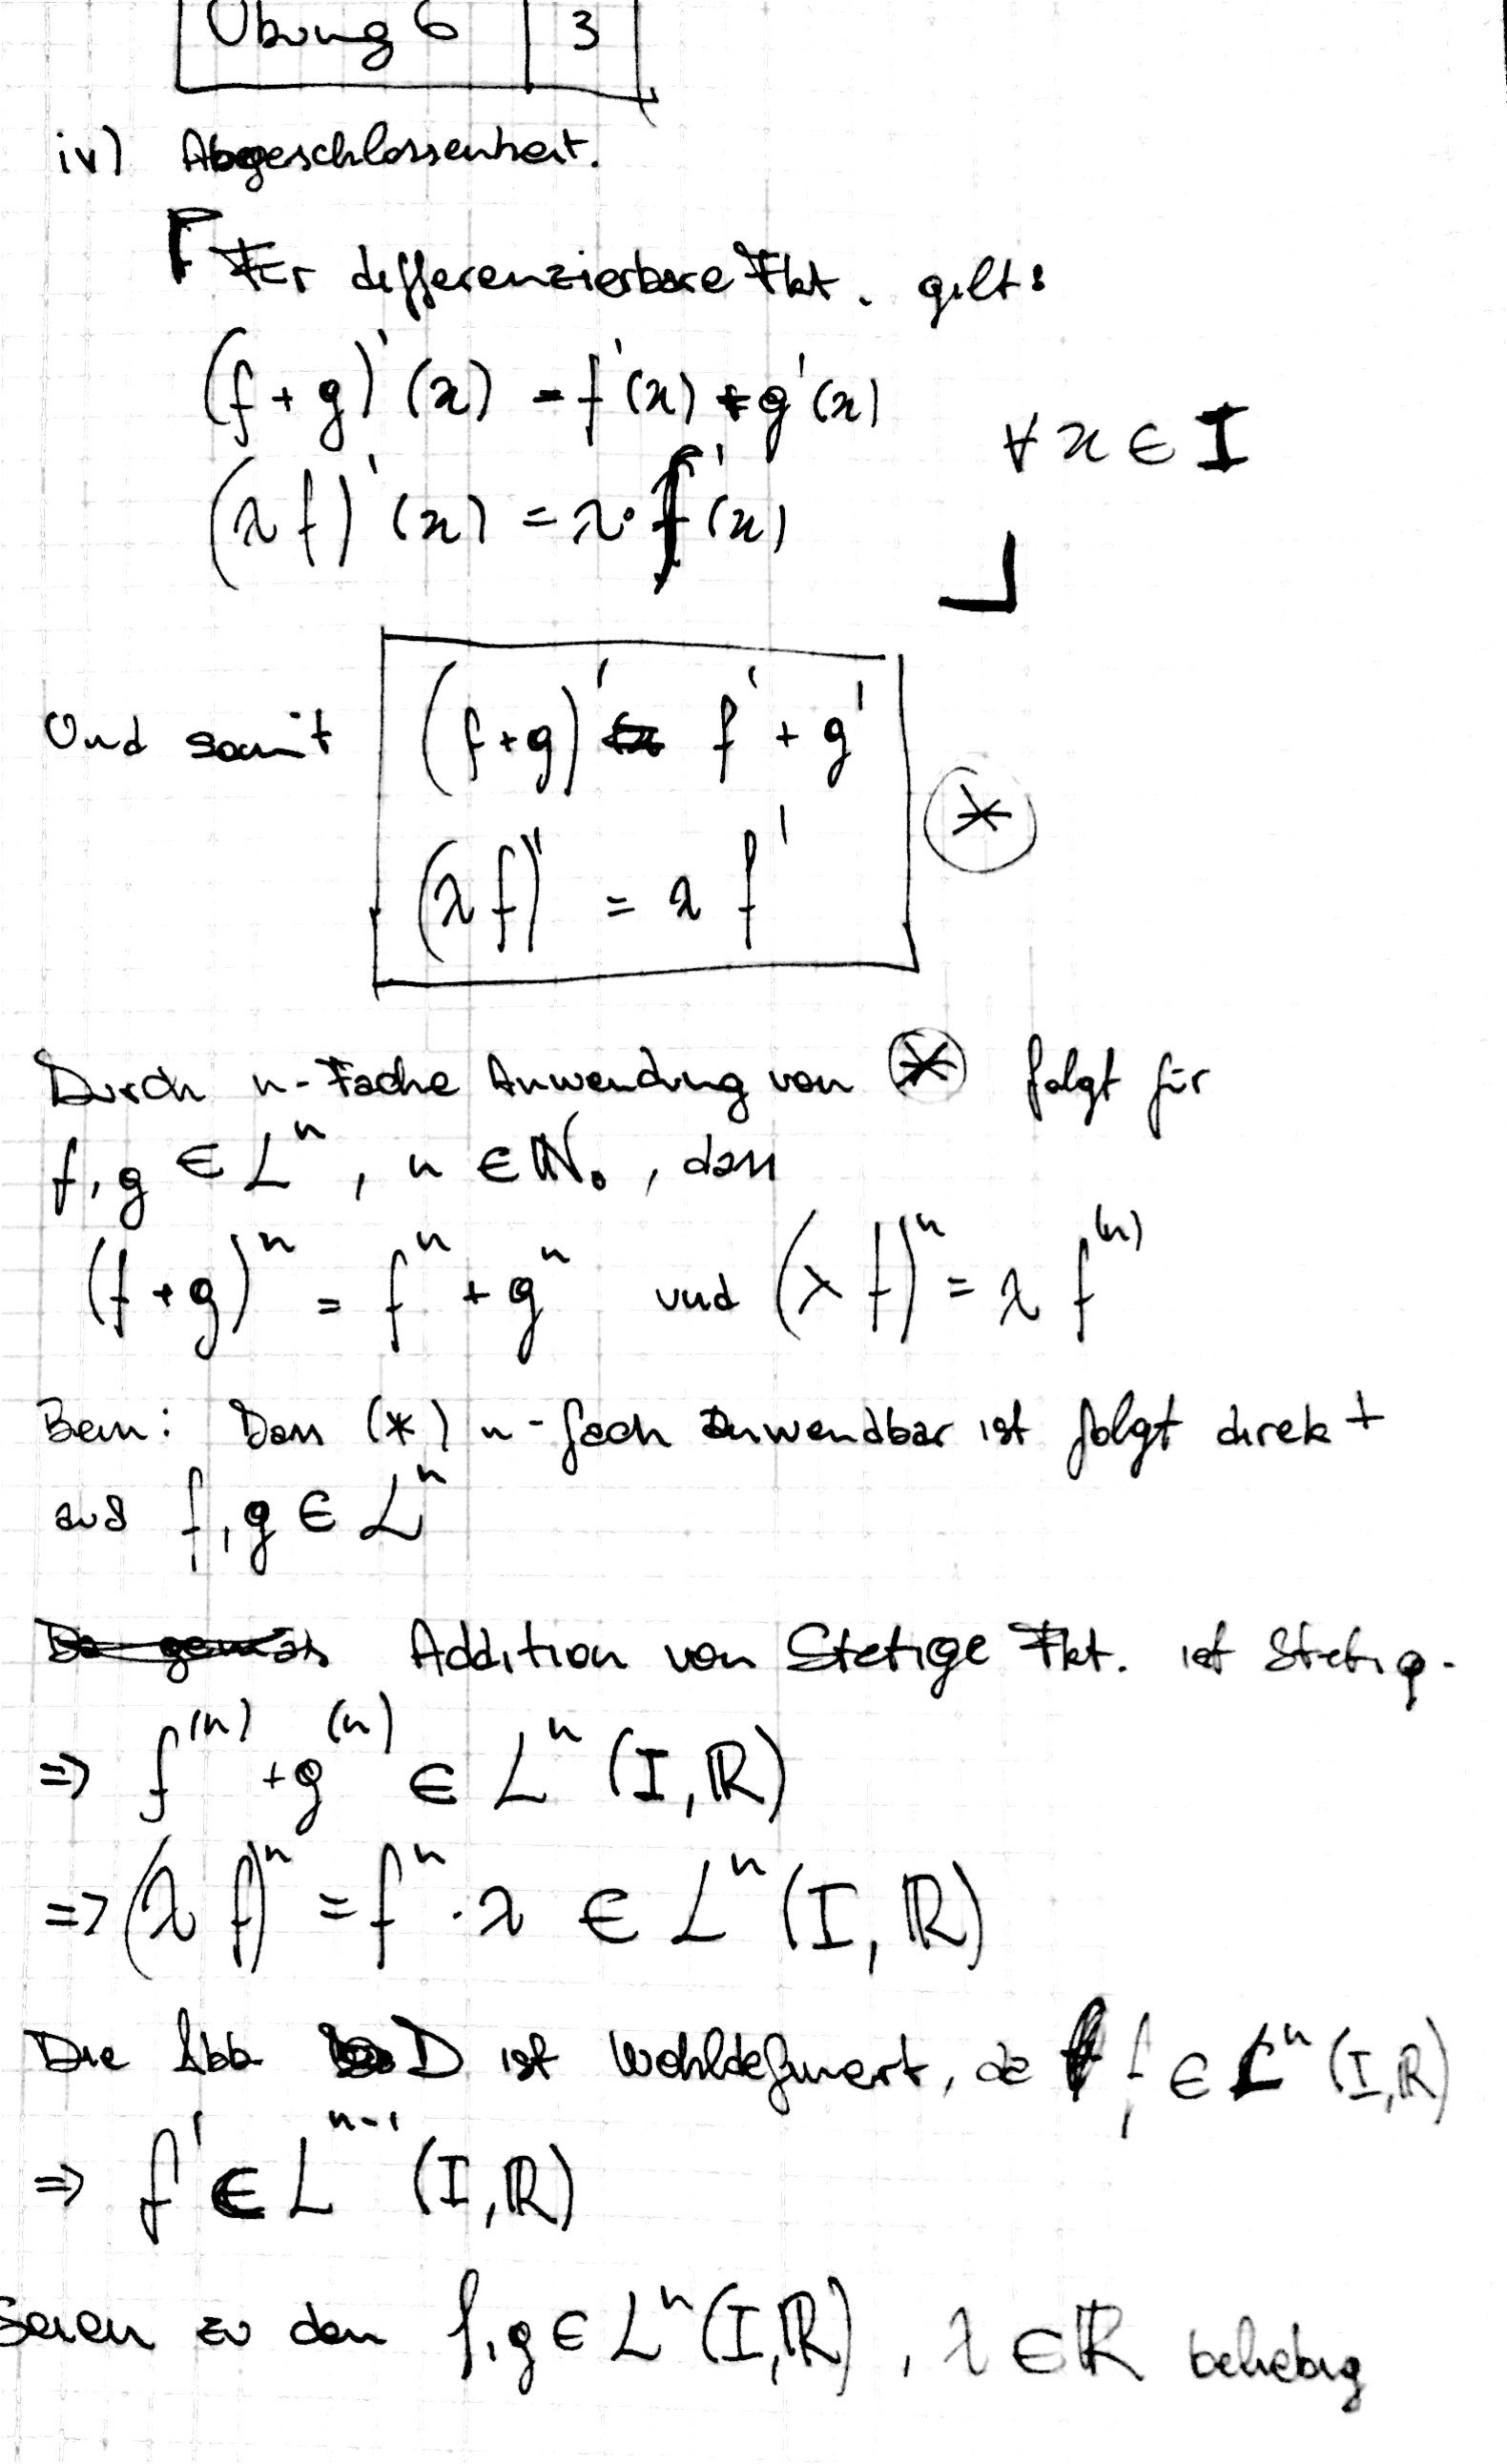 Übung 6 | 3
iv) Abgeschlossenheit.
Für differenzierbare Fkt. gilt:
(f+g)'(x) = f'(x) + g'(x)
∀ x ∈ I
(λf)'(x) = λ·f'(x)
Und somit (f+g)' = f' + g'
(*)
(λf)' = λ f'
Durch n-Fache Anwendung von (*) folgt für
f, g ∈ L^n, n ∈ ℕ₀, dass
(f+g)^n = f^n + g^n und (λf)^n = λ f^(n)
Bem: Dass (*) n-fach anwendbar ist folgt direkt
aus f, g ∈ L^n
Addition von Stetige Fkt. ist Stetig.
⇒ f^(n) + g^(n) ∈ L^n (I, ℝ)
⇒ (λf)^n = f^n · λ ∈ L^n (I, ℝ)
Die Abb D ist Wohldefiniert, da f ∈ L^n (I, ℝ)
⇒ f' ∈ L^n-1 (I, ℝ)
Seien zu dem f, g ∈ L^n (I, ℝ), λ ∈ ℝ beliebig